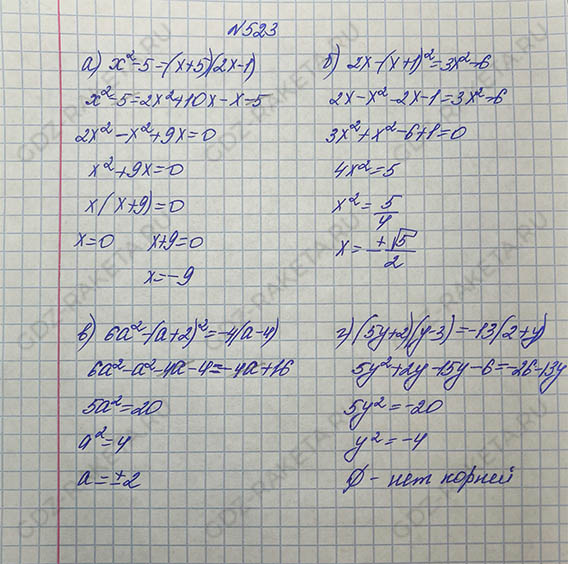 №523
а) x²-5=(x+5)(2x-1)
x²-5=2x²+10x-x-5
2x²-x²+9x=0
x²+9x=0
x(x+9)=0
x=0 x+9=0
x=-9
б) 2x-(x+1)²=3x²-6
2x-x²-2x-1=3x²-6
3x²+x²-6+1=0
4x²=5
x²=5/4
x=±√5/2
в) 6a²-(a+2)²=-4(a-4)
6a²-a²-4a-4=-4a+16
5a²=20
a²=4
a=±2
г) (5y+2)(y-3)=-13(2+y)
5y²+2y-15y-6=-26-13y
5y²=-20
y²=-4
∅ - нет корней
GDZ-RAKETA.RU